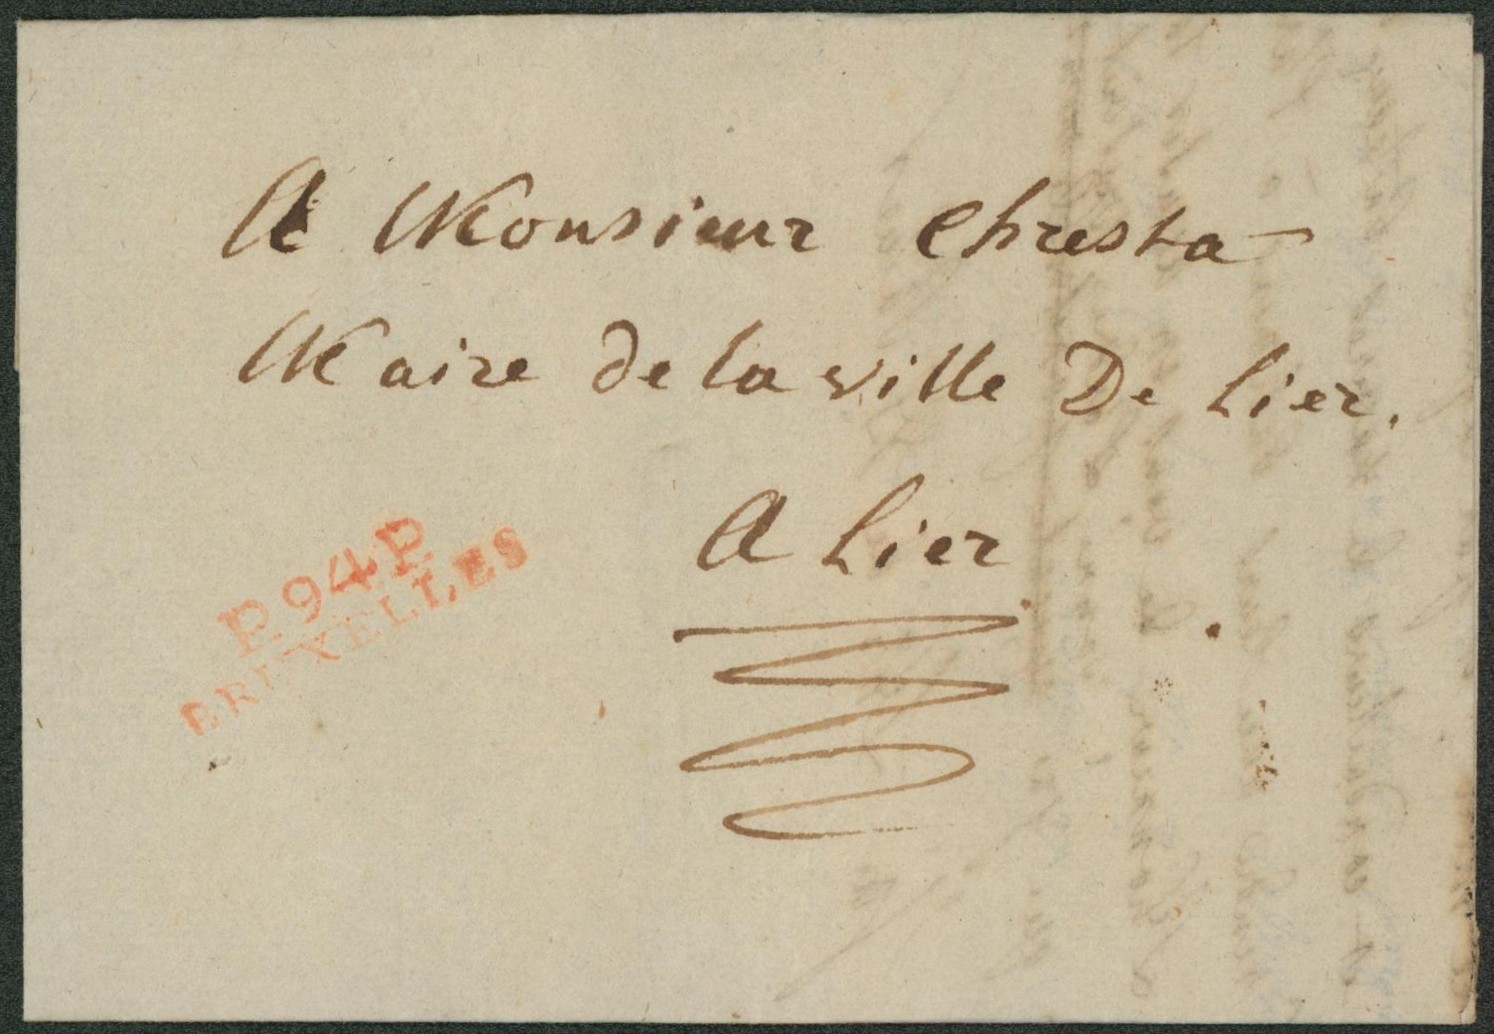 A Monsieur Chresta
Maire de la ville De Lier.
A Lier
P.94.P.
BRUXELLES